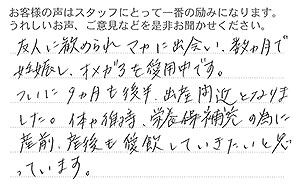 お客様の声はスタッフにとって一番の励みになります。
うれしいお声、ご意見などを是非お聞かせください。
友人に勧められマカに出会い、数ヵ月で
妊娠し、オメガ3を愛用中です。
ついに9ヵ月も後半、出産間近となりま
した。体力維持、栄養保補充の為に
産前、産後も愛飲していきたいと思
っています。